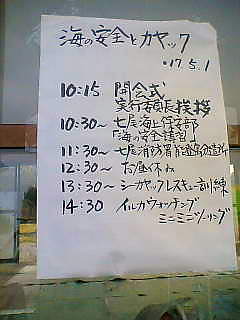 海の安全とカヤック
'17.5.1
10:15 開会式
実行委員長挨拶
10:30～ 七尾海上保安部
「海の安全講習」
11:30～ 七尾消防署
12:30～ お昼休み
13:30～ シーカヤックレスキュー訓練
14:30 イルカウォッチング
ミニミニツーリング